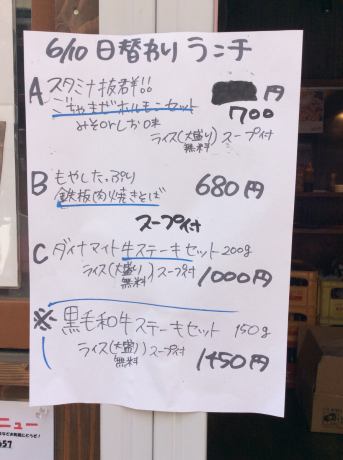 6/10 日替わり ランチ
A スタミナ抜群!!
ごちゃまぜホルモンセット
円
700
みそorしお味
ライス(大盛り無料) スープ付
B もやしたっぷり
鉄板肉焼きそば 680円
スープ付
C ダイナマイト牛ステーキセット 200g
ライス(大盛り無料) スープ付 1000円
※ 黒毛和牛ステーキセット 150g
ライス(大盛り無料) スープ付 1450円
ニュー
657